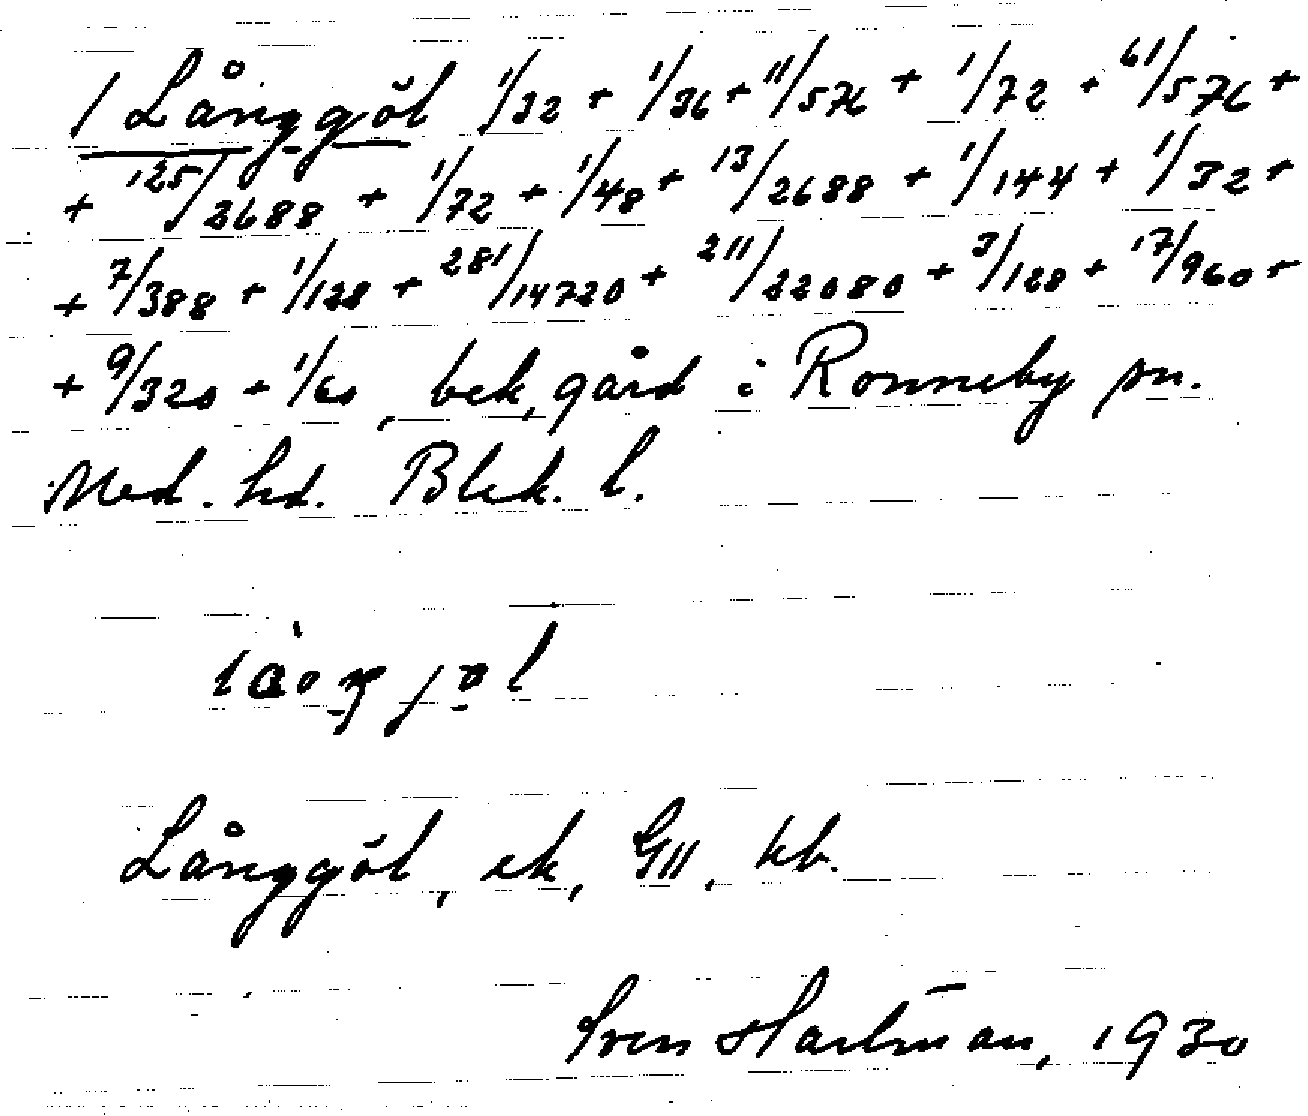 1 Långgöl 1/32 + 1/36 + 11/576 + 1/72 + 61/576 +
+ 125/2688 + 1/72 + 1/48 + 13/2688 + 1/144 + 1/32 +
+ 7/388 + 1/128 + 281/14720 + 211/22080 + 3/128 + 17/960 +
+ 9/320 + 1/60, bek, gård i Ronneby sn.
Med. hd. Blek. l.
Långgöl, ek, GII, kb.
Sven Hartman, 1930